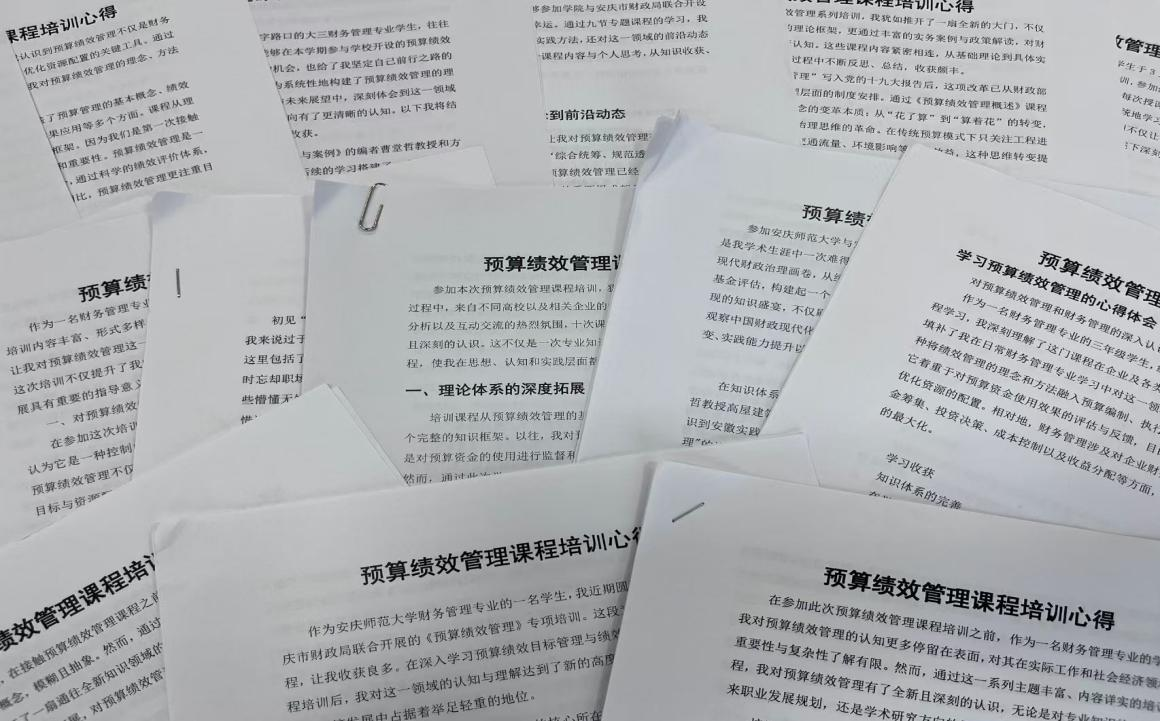 课程培训心得
认识到预算绩效管理不仅是财务
优化资源配置的关键工具。通过
我对预算绩效管理的理念、方法
了预算管理的基本概念、绩效
果应用等多个方面。课程从理
框架。因为我们是第一次接触
和重要性。预算绩效管理是一
,通过科学的绩效评价体系,
比,预算绩效管理更注重目
字路口的大三财务管理专业学生,往往
够在本学期参与学校开设的预算绩效
机会,也给了我坚定自己前行之路的
为系统性地构建了预算绩效管理的理
未来展望中,深刻体会到这一领域
向有了更清晰的认知。以下我将结
收获。
与案例》的编者曹堂哲教授和方
后续的学习搭建了
够参加学院与安庆市财政局联合开设
幸运。通过九节专题课程的学习,我
实践方法,还对这一领域的前沿动态
课程内容与个人思考,从知识收获、
到前沿动态
让我对预算绩效管理
“综合统筹、规范透
预算绩效管理已经
绩效管理课程培训心得
效管理系列培训,我犹如推开了一扇全新的大门,不仅
的理论框架,更通过丰富的实务案例与政策解读,对财
认知。这些课程内容紧密相连,从基础理论到具体实
过程中不断反思、总结,收获颇丰。
管理”写入党的十九大报告后,这项改革已从财政部
层面的制度安排。通过《预算绩效管理概述》课程
念的变革本质:从“花了算”到“算着花”的转变,
治理思维的革命。在传统预算模式下只关注工程进
交通流量、环境影响等
效益,这种思维转变提
效管理
学生于3
训,参加
每次授课
统地学习
不仅让
下深刻
预算绩
作为一名财务管理专业
培训内容丰富、形式多样
让我对预算绩效管理这一
这次培训不仅提升了我
展具有重要的指导意义
一、对预算绩效
在参加这次培训
认为它是一种控制
预算绩效管理不仅
目标与资源
初见“
我来说过于
这里包括了
时忘却职场
些懵懂无
预算绩效管理
参加本次预算绩效管理课程培训,
过程中,来自不同高校以及相关企业的
分析以及互动交流的热烈氛围,十次课
且深刻的认识。这不仅是一次专业知
程,使我在思想、认知和实践层面都
一、理论体系的深度拓展
培训课程从预算绩效管理的基
个完整的知识框架。以往,我对
是对预算资金的使用进行监督和
然而,通过此次学
预算绩
参加安庆师范大学与
是我学术生涯中一次难得
现代财政治理画卷,从
基金评估,构建起一个
现的知识盛宴,不仅
观察中国财政现代化
变、实践能力提升以
在知识体系
哲教授高屋建
识到安徽实践
理”的
预算绩效管理
学习预算绩效管理的心得体会
对预算绩效管理和财务管理的深入认识
作为一名财务管理专业的三年级学生,
程学习,我深刻理解了这门课程在企业及各类
填补了我在日常财务管理专业学习中对这一领
种将绩效管理的理念和方法融入预算编制、执行
它着重于对预算资金使用效果的评估与反馈,目
优化资源的配置。相对地,财务管理涉及对企业财
金筹集、投资决策、成本控制以及收益分配等方面,
的最大化。
学习收获
知识体系的完善
绩效管理课程培训
,在接触预算绩效管理课程之前
概念,模糊且抽象。然而,通过
一扇通往全新知识领域的
,对预算绩效管
预算绩效管理课程培训心得
作为安庆师范大学财务管理专业的一名学生,我近期圆
庆市财政局联合开展的《预算绩效管理》专项培训。这段
程,让我收获良多。在深入学习预算绩效目标管理与绩效
程培训后,我对这一领域的认知与理解达到了新的高度
发展中占据着举足轻重的地位。
预算绩效管理课程培训心得
在参加此次预算绩效管理课程培训之前,作为一名财务管理专业的学
我对预算绩效管理的认知更多停留在表面,对其在实际工作和社会经济领
重要性与复杂性了解有限。然而,通过这一系列主题丰富、内容详实的培
程,我对预算绩效管理有了全新且深刻的认识,无论是对专业知识
来职业发展规划,还是学术研究方向